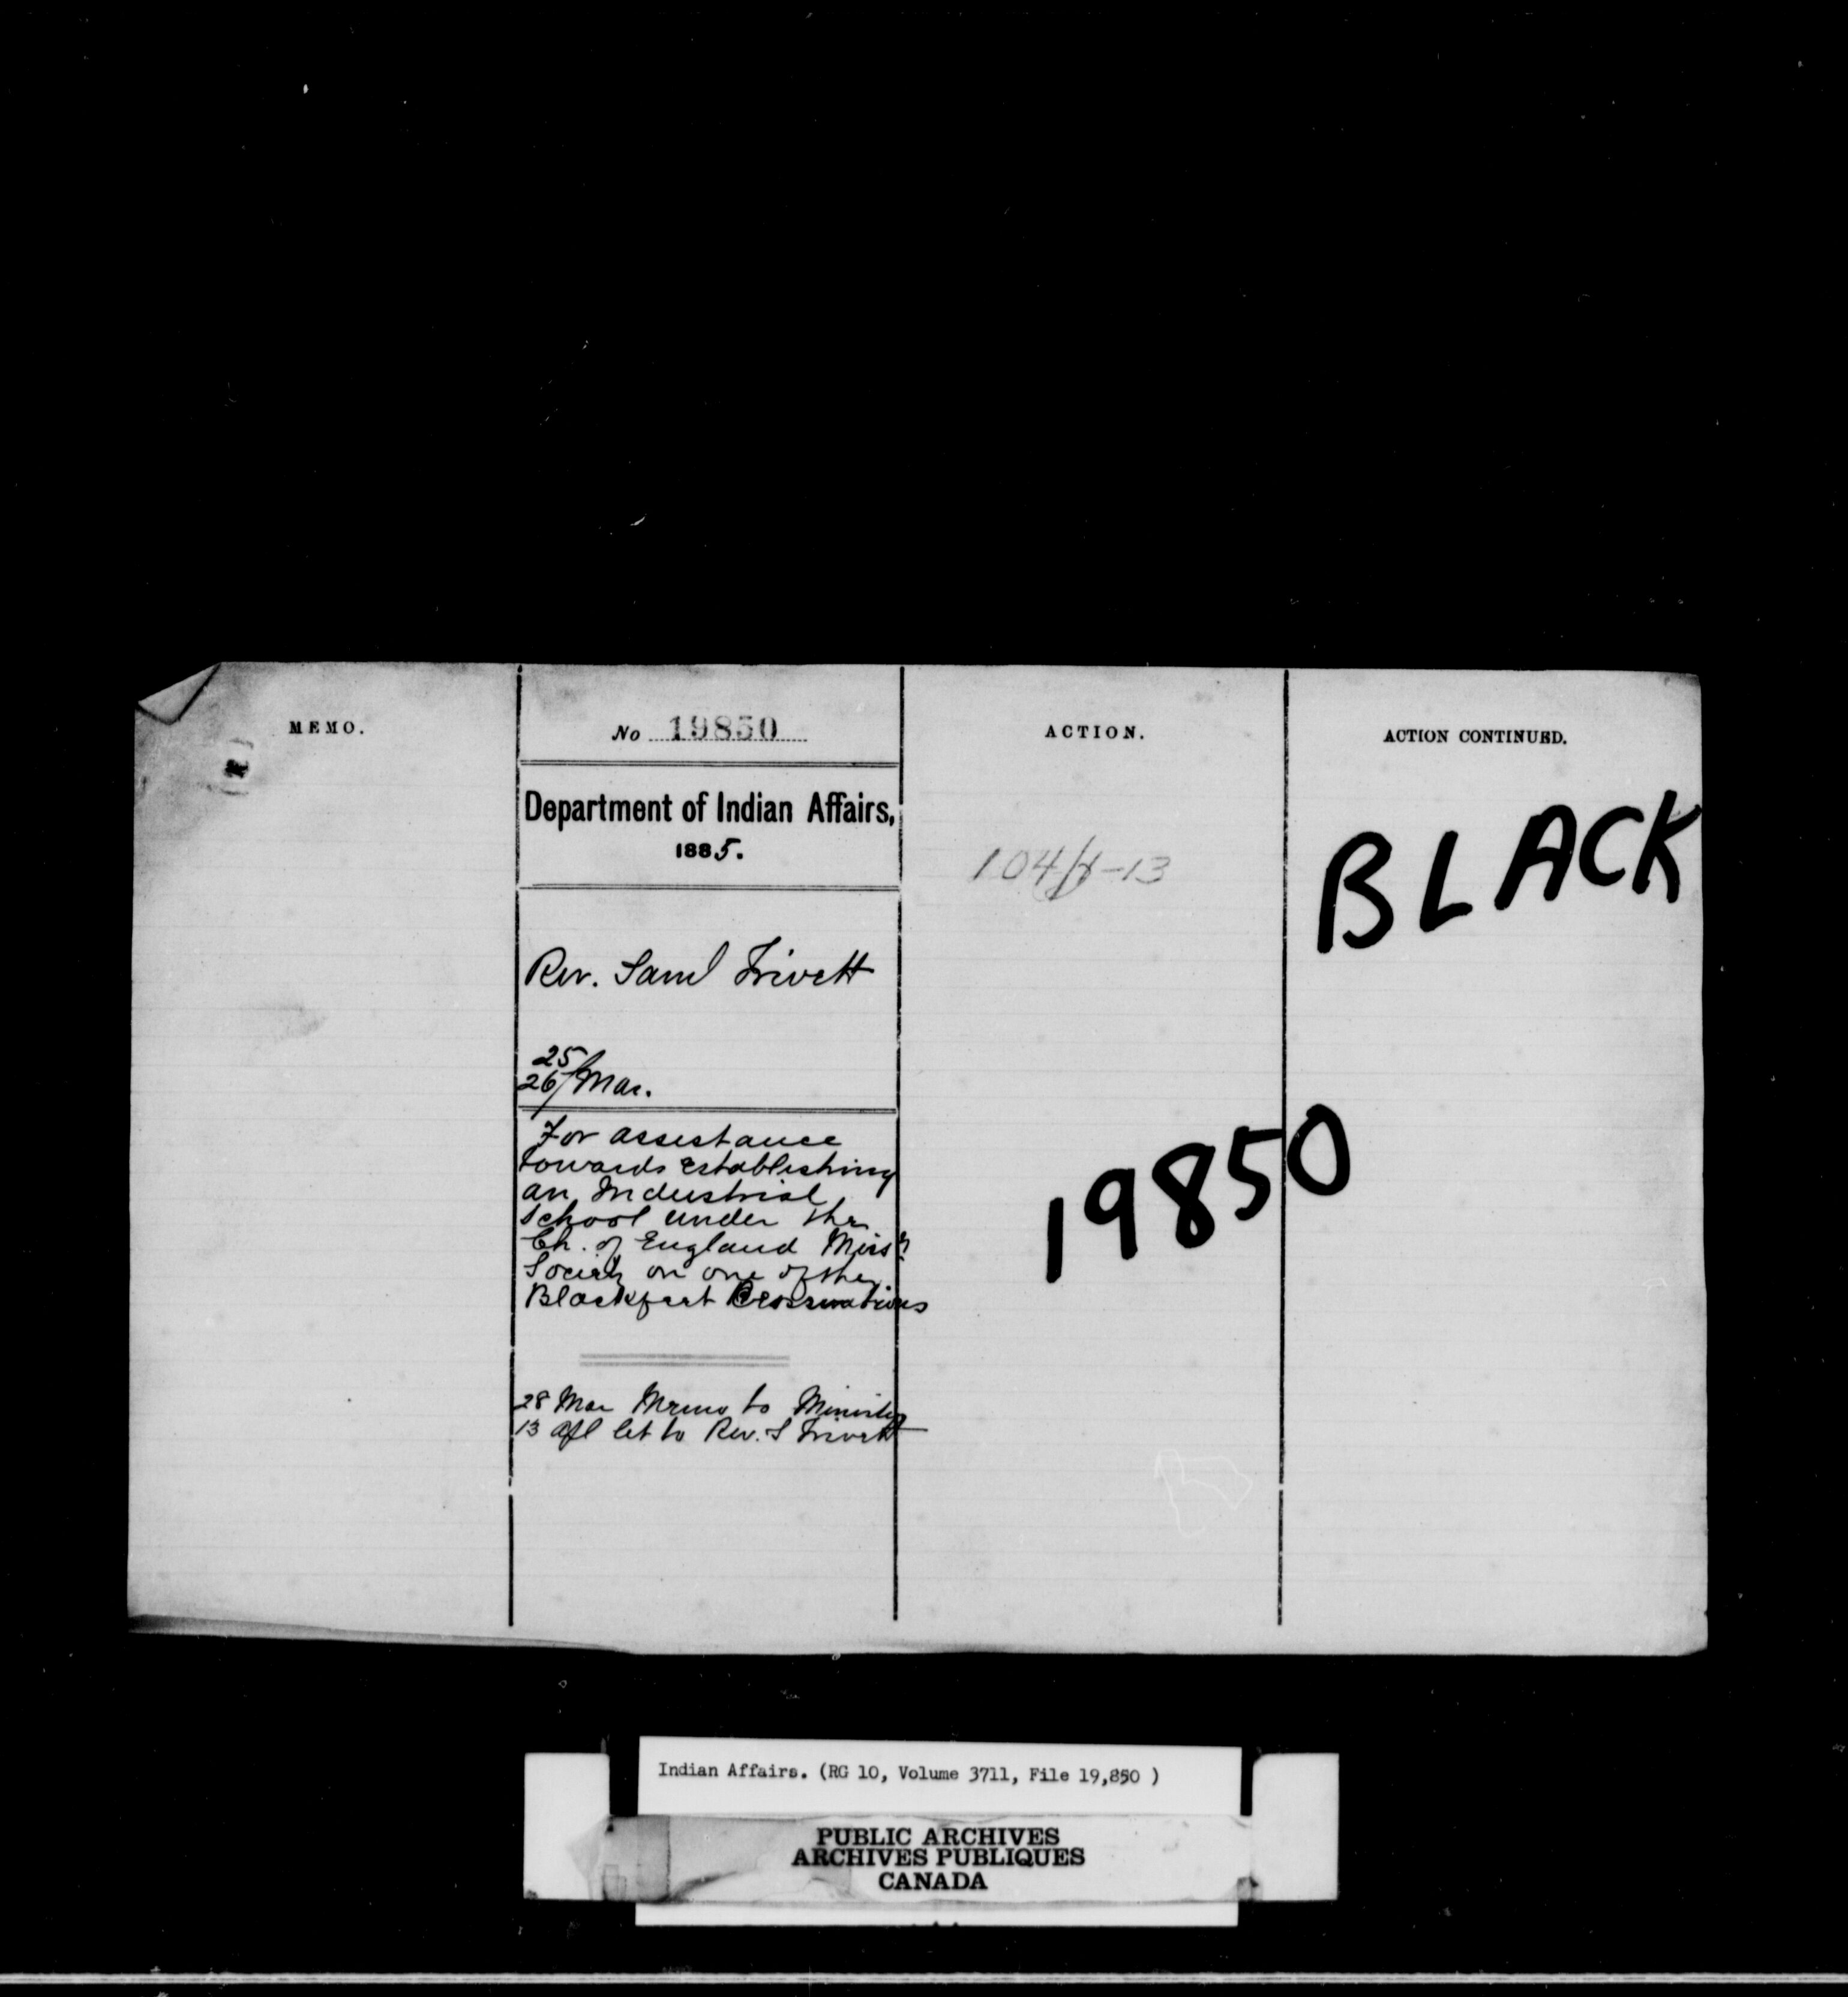 MEMO.
No 19850
Department of Indian Affairs,
1885.
Rev. Saml Trivett
25
26/Mar.
For assistance
towards establishing
an Industrial
School under the
Ch. of England Miss
Society on one of the
Blackfeet Reservations
28 Mar Memo to Minister
13 Apl let to Rev. S Trivett
ACTION.
19850
ACTION CONTINUED.
BLACK
Indian Affairs. (RG 10, Volume 3711, File 19,850 )
PUBLIC ARCHIVES
ARCHIVES PUBLIQUES
CANADA